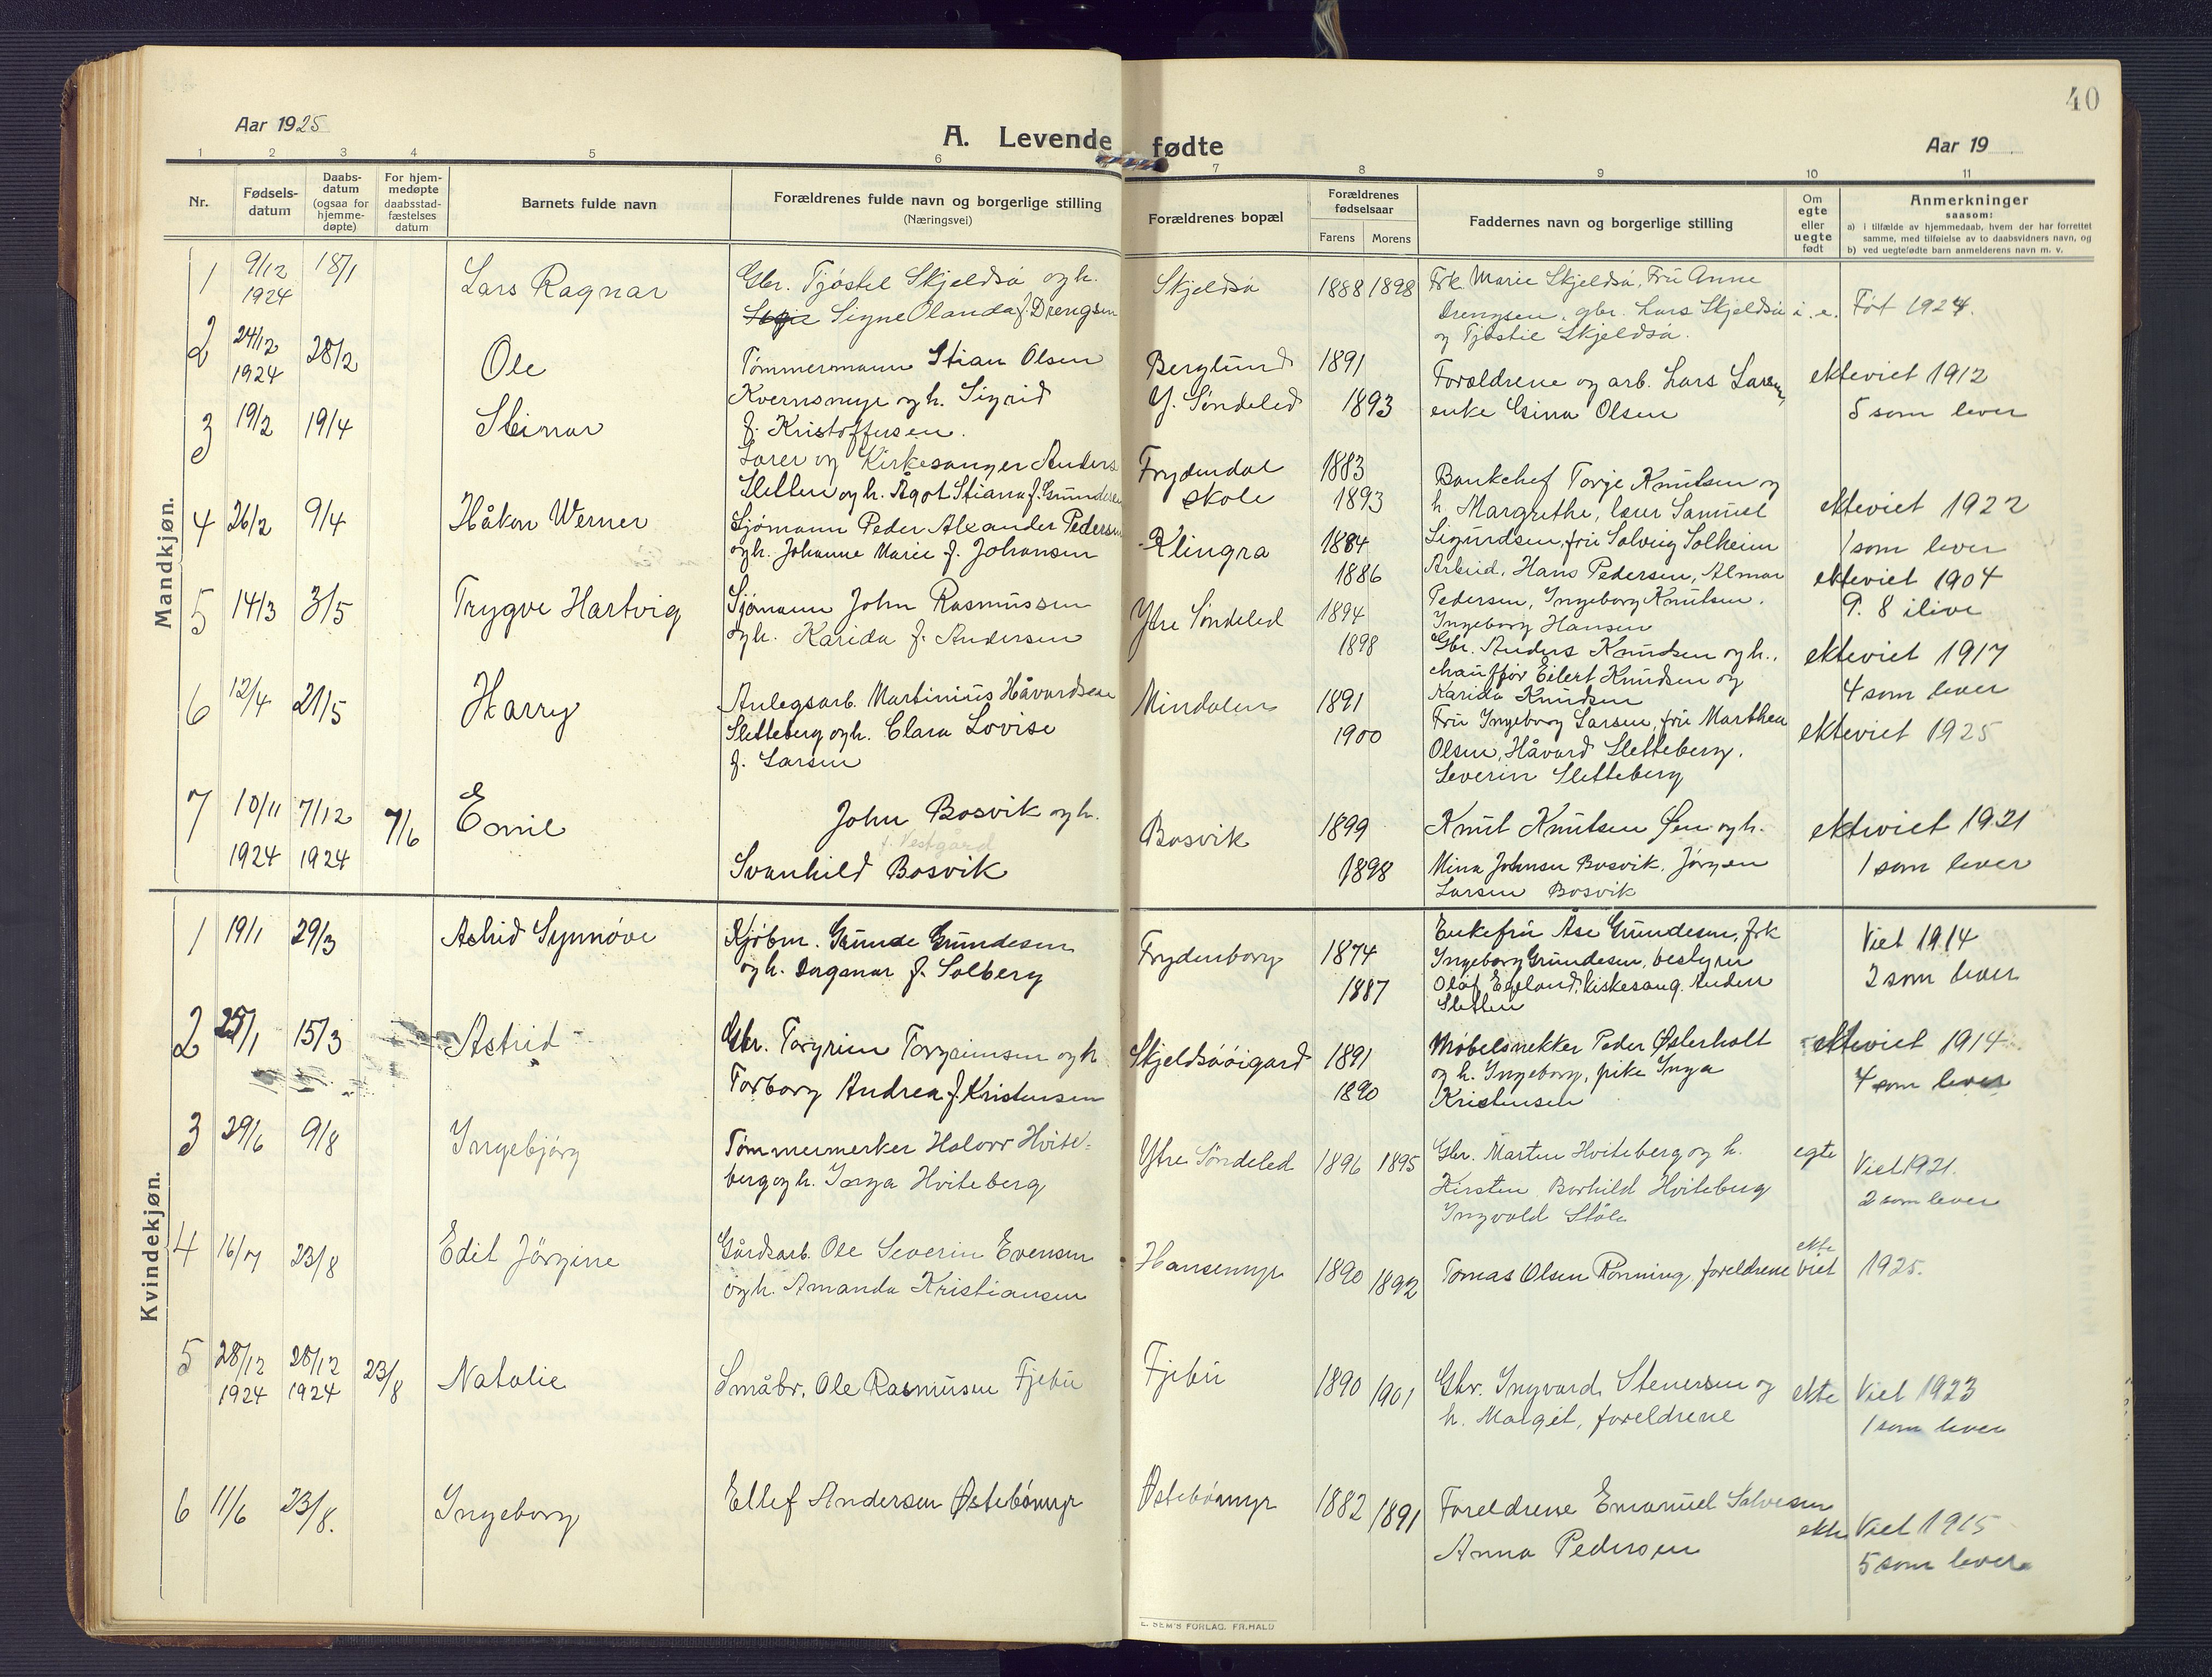 40
Aar 1925
A. Levende fødte
Aar 19
1 2 3 4 5 6 7 8 9 10 11
Nr.
Fødsels-
datum
Daabs-
datum
(ogsaa for
hjemme-
døpte)
For hjem-
medøpte
daabsstad-
fæstelses
datum
Barnets fulde navn
Forældrenes fulde navn og borgerlige stilling
(Næringsvei)
Forældrenes bopæl
Forældrenes
fødselsaar
Farens Morens
Faddernes navn og borgerlige stilling
Om
egte
eller
uegte
født
Anmerkninger
saasom:
a) i tilfælde av hjemmedaab, hvem der har forrettet
samme, med tilføielse av to daabsvidners navn, og
b) ved uegtefødte barn anmelderens navn m. v.
Mandkjøn.
1 9/12 1924 18/1
Lars Ragnar
Gbr. Tjøstel Skjeldså og h.
Signe Olanda f. Drengsen
Skjeldså
1888 1898
Frk. Marie Skjeldså, Fru Anne
Drengsen, gbr. Lars Skjeldså
og Tjøstel Skjeldså.
i. e.
Føt 1924.
2 24/12 1924 28/2
Ole
Tømmermann Stian Olsen
Kvernsmyr og h. Sigrid
f. Kristoffersen.
Berglund
Y. Søndeled
1891
1893
Forældrene og arb. Lars Larsen,
enke Gina Olsen
ekteviet 1912
5 som lever
3 19/2 19/4
Steinar
Lærer og Kirkesanger Anders
Sletten og h. Ågot Stiana f. Gundersen
Frydendal
skole
1883
1893
Bankchef Torje Knutsen og
h. Margrethe, lærer Samuel
Sigurdsen, fru Solveig Solheim
ekteviet 1922
1 som lever
4 26/2 9/4
Håkon Werner
Sjømann Peder Alexander Pedersen
og h. Johanne Marie f. Johansen
Klingra
1884
1886
Arbeid. Hans Pedersen, Almar
Pedersen, Ingeborg Knutsen.
Ingeborg Hansen
ekteviet 1904
9. 8 ilive
5 14/3 3/5
Trygve Hartvig
Sjømann John Rasmussen
og h. Karida f. Andersen
Ytre Søndeled
1894
1898
Gbr. Anders Knudsen og h.,
chauffør Eilert Knudsen og
Karida Knudsen
ekteviet 1917
4 som lever
6 12/4 21/5
Harry
Anlegsarb. Martinius Håvardsen
Sletteberg og h. Clara Lovise
f. Larsen
Mindalen
1891
1900
Fru Ingeborg Larsen, fru Marthea
Olsen, Håvard Sletteberg.
Severin Sletteberg
ekteviet 1925
7 10/11 1924 7/12 1924 7/6
Emil
John Bosvik og h.
f. Vestgård
Svanhild Bosvik
Bosvik
1899
1898
Knut Knutsen Øen og h.
Mina Johnsen Bosvik, Jørgen
Larsen Bosvik
ekteviet 1921
1 som lever
Kvindekjøn.
1 19/1 29/3
Astrid Synnøve
Kjøbm. Gunde Gundesen
og h. Dagmar f. Solberg
Frydenborg
1874
1887
Enkefru Åse Gundesen, frk
Ingeborg Gundesen, bestyrer
Olaf Egeland, kirkesang. Anders
Sletten
Viet 1914
2 som lever
2 25/1 15/3
Astrid
Gbr. Torgrim Torgrimsen og h
Torborg Andrea f. Kristensen
Skjeldsåøigard
1891
1890
Møbelsnekker Peder Østerholt
og h. Ingeborg, pike Inga
Kristensen
ekteviet 1914
4 som lever
3 29/6 9/8
Ingebjørg
Tømmermerker Halvor Hvite-
berg og h. Inga Hviteberg
Ytre Søndeled
1896 1895
Gbr. Marten Hviteberg og h.
Kirsten, Borhild Hviteberg
Ingvald Støle
egte
Viet 1921.
2 som lever
4 16/7 23/8
Edit Jørgine
Gårdsarb. Ole Severin Evensen
og h. Amanda Kristiansen
Hansemyr
1890 1892
Tomas Olsen Rønning, foreldrene
ekte
viet
1925.
5 28/12 1924 28/12 1924 23/8
Natalie
Småbr. Ole Rasmusen Fjebu
Fjebu
1890 1901
Gbr. Ingvard Stenersen og
h. Margit, foreldrene
ekte
Viet 1923
1 som lever
6 11/6 23/8.
Ingeborg
Ellef Andersen Østebømyr
Østebømyr
1882 1891
Foreldrene Emanuel Salvesen
Anna Pedersen
ekte
Viet 1915
5 som lever
E. SEM'S FORLAG. FR.HALD